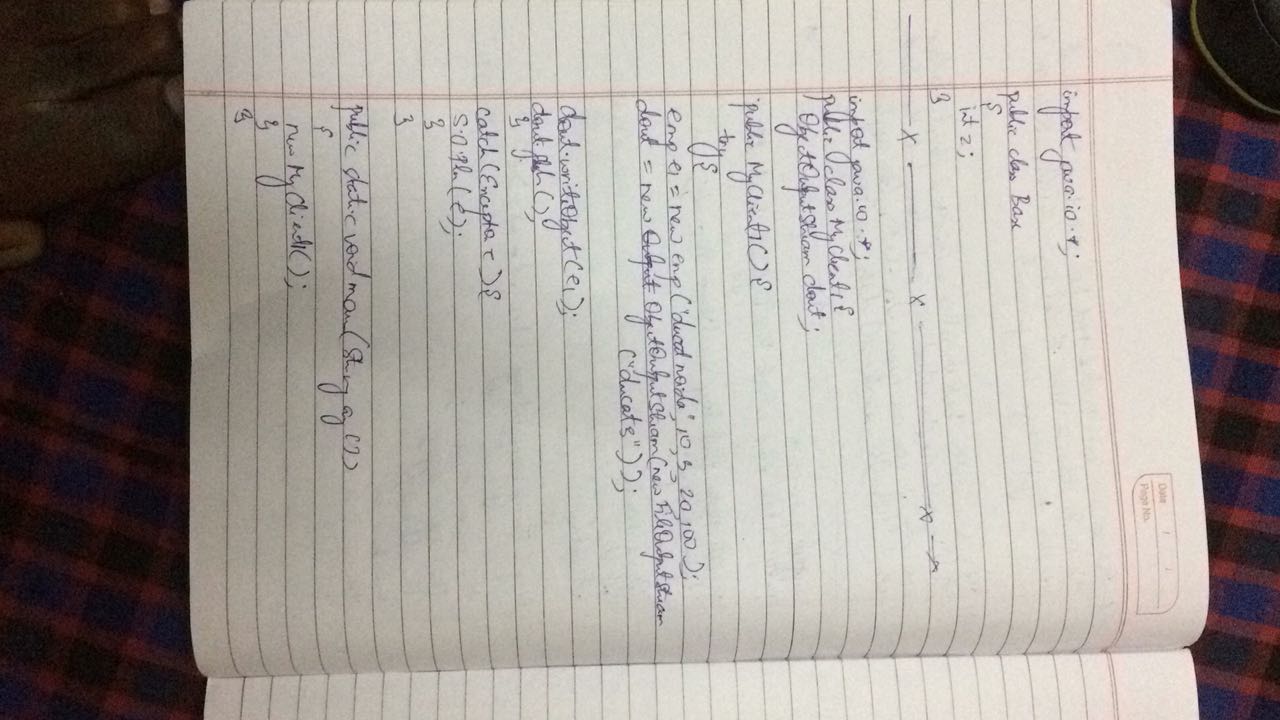 Date / /
Page No.
import java.io.*;
public class Base
{
int z;
}
import java.io.*;
public class MyClient1 {
ObjectOutputStream dout;
public MyClient1() {
try {
emp e1 = new emp ("ducat noida", 10, 5, 20, 100);
dout = new Output ObjectOutputStream(new FileOutputStream
("ducats"));
dout.writeObject(e1);
dout.flush();
}
catch(Exception e) {
S.O.Pln(e);
}
}
public static void main(String arg[])
{
new MyClient1();
}
}